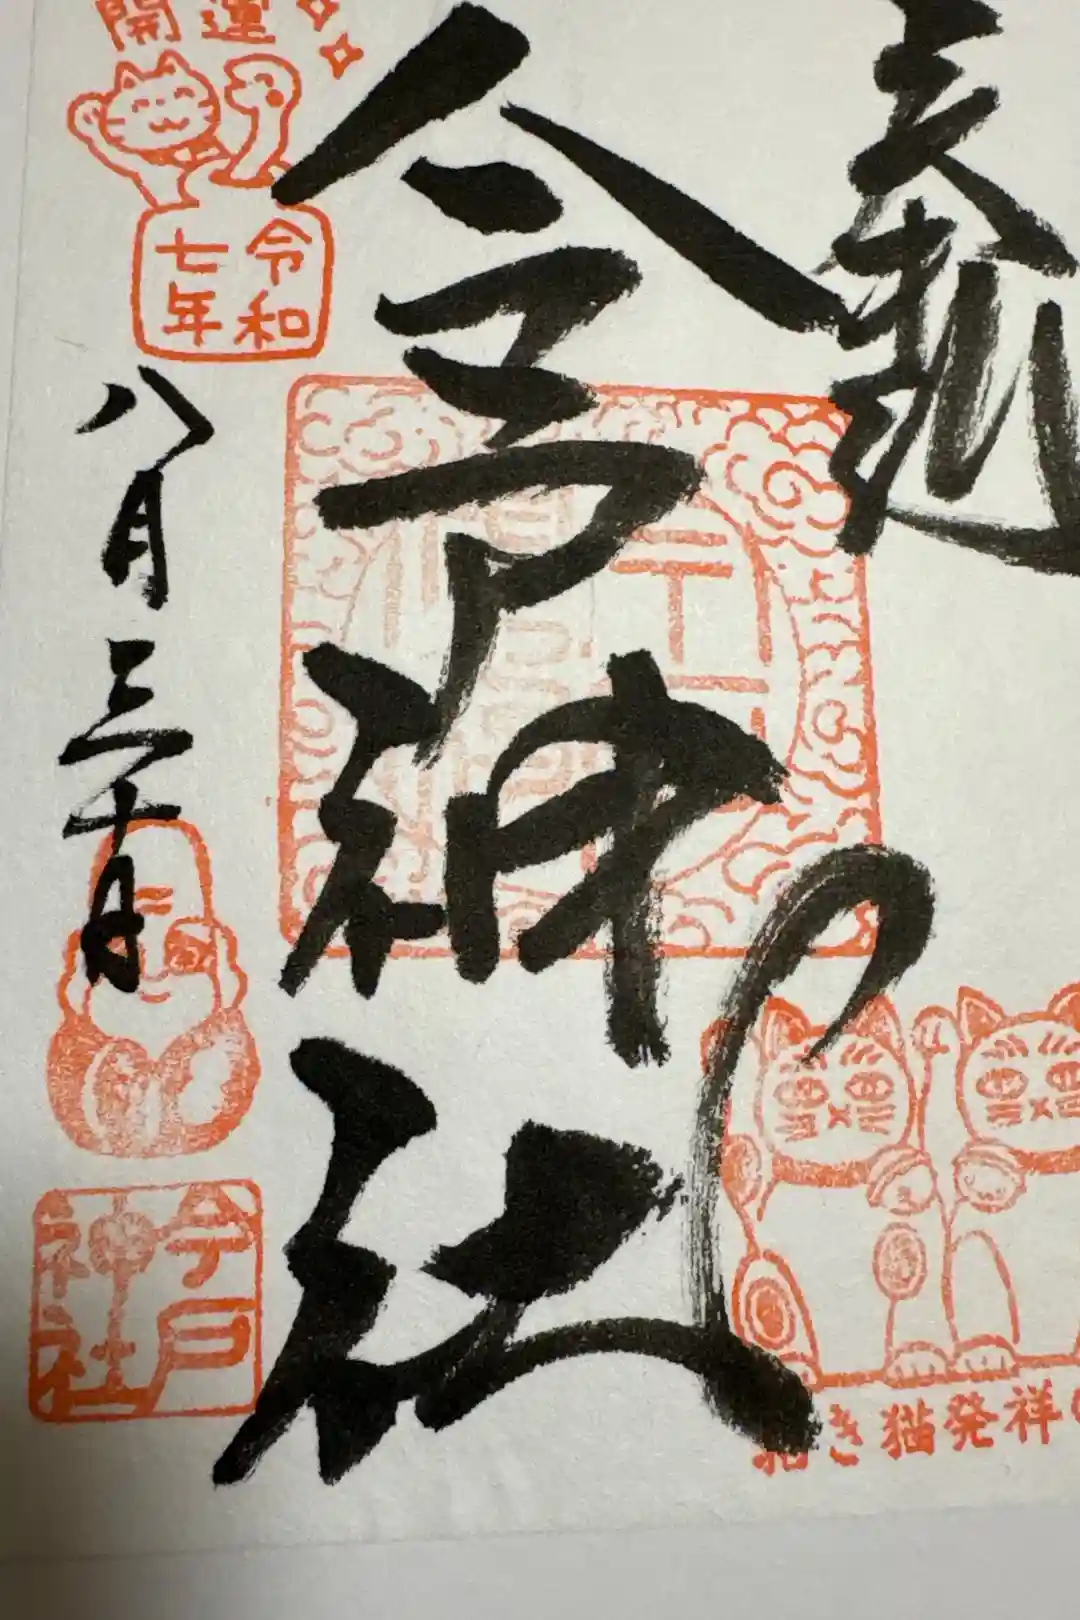 奉拝
今戸神社
開運
令和
七年
八月三十日
今戸
神社
招き猫発祥の